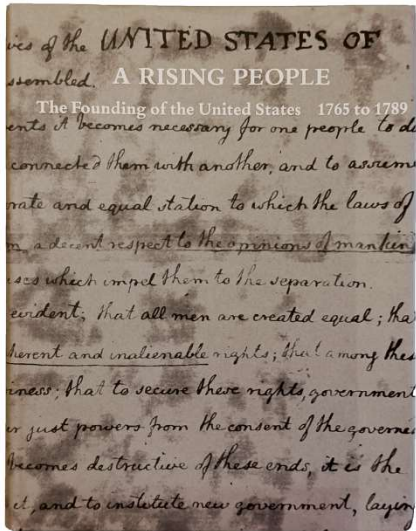 ives of the UNITED STATES OF
ssembled.
A RISING PEOPLE
The Founding of the United States 1765 to 1789
ents it becomes necessary for one people to di
connected them with another, and to assume
rate and equal station to which the laws of
a decent respect to the opinions of mankind
ses which impel them to the separation.
evident; that all men are created equal; tha
herent and inalienable rights; that among thes
iness: that to secure these rights, government
ir just powers from the consent of the governe
becomes destructive of these ends, it is the
it, and to institute new government, layin